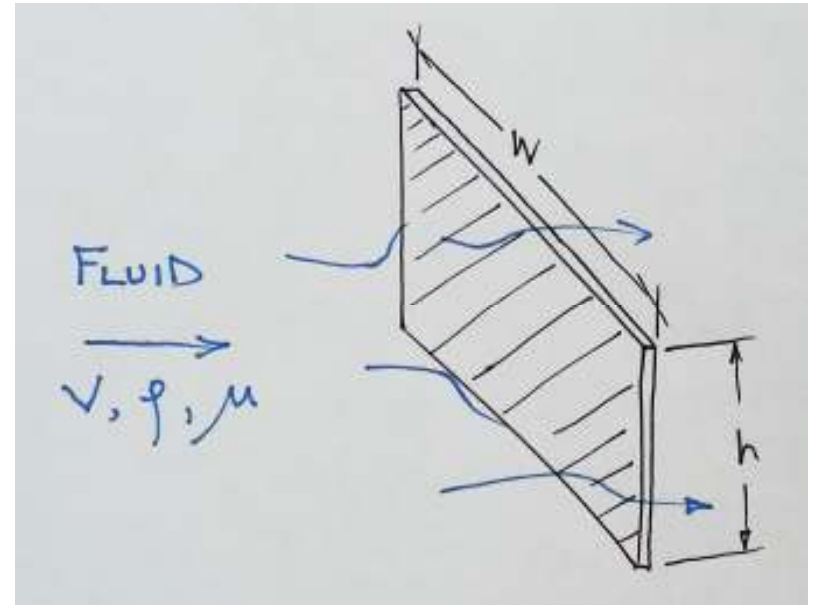 W
FLUID
V, ρ, μ
h